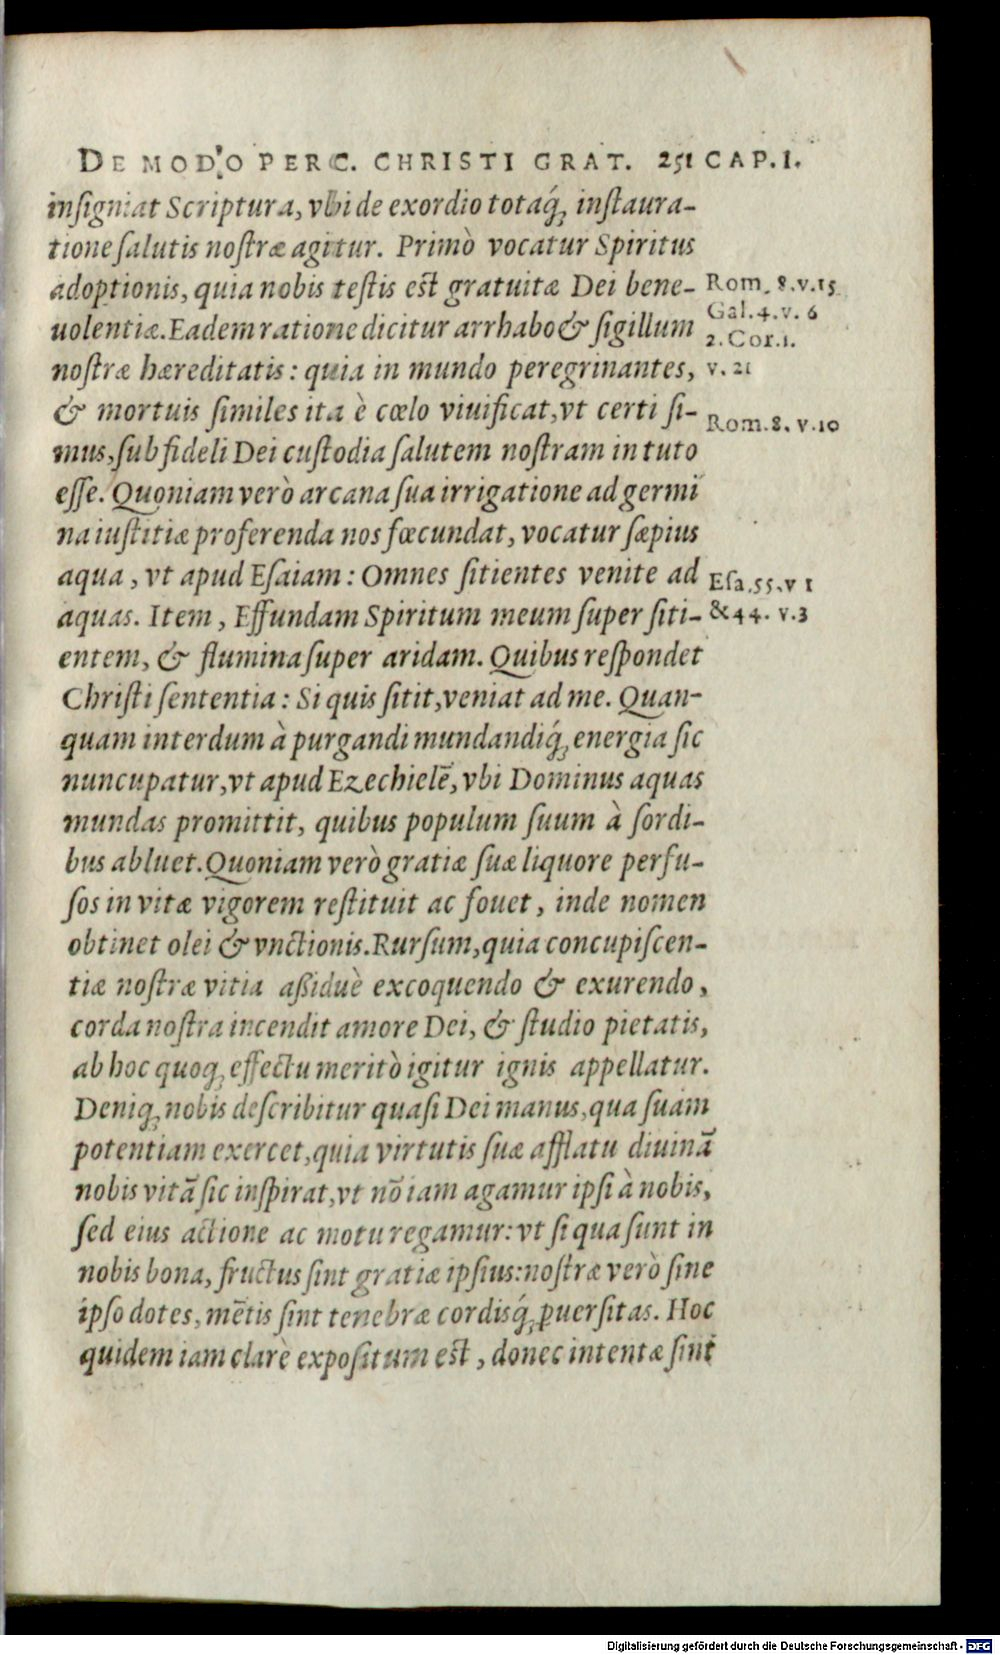 DE MODO PERC. CHRISTI GRAT. 251 CAP. I.
insigniat Scriptura, vbi de exordio totaq́; instaura-
tione salutis nostræ agitur. Primò vocatur Spiritus
adoptionis, quia nobis testis est gratuitæ Dei bene-
uolentiæ. Eadem ratione dicitur arrhabo & sigillum
nostræ hæreditatis: quia in mundo peregrinantes,
& mortuis similes ita è cœlo viuificat, vt certi si-
mus, sub fideli Dei custodia salutem nostram in tuto
esse. Quoniam verò arcana sua irrigatione ad germi
na iustitiæ proferenda nos fœcundat, vocatur sæpius
aqua, vt apud Esaiam: Omnes sitientes venite ad
aquas. Item, Effundam Spiritum meum super siti-
entem, & flumina super aridam. Quibus respondet
Christi sententia: Si quis sitit, veniat ad me. Quan-
quam interdum à purgandi mundandiq́; energia sic
nuncupatur, vt apud Ezechielē, vbi Dominus aquas
mundas promittit, quibus populum suum à sordi-
bus abluet. Quoniam verò gratiæ suæ liquore perfu-
sos in vitæ vigorem restituit ac fouet, inde nomen
obtinet olei & vnctionis. Rursum, quia concupiscen-
tiæ nostræ vitia aßiduè excoquendo & exurendo,
corda nostra incendit amore Dei, & studio pietatis,
ab hoc quoq; effectu meritò igitur ignis appellatur.
Deniq; nobis describitur quasi Dei manus, qua suam
potentiam exercet, quia virtutis suæ afflatu diuinā
nobis vitā sic inspirat, vt nō iam agamur ipsi à nobis,
sed eius actione ac motu regamur: vt si qua sunt in
nobis bona, fructus sint gratiæ ipsius: nostræ verò sine
ipso dotes, mētis sint tenebræ cordisq́; ꝑuersitas. Hoc
quidem iam clarè expositum est, donec intentæ sint
Rom. 8. v. 15
Gal. 4. v. 6
2. Cor. 1.
v. 21
Rom. 8. v. 10
Esa. 55. v 1
& 44. v. 3
Digitalisierung gefördert durch die Deutsche Forschungsgemeinschaft - DFG